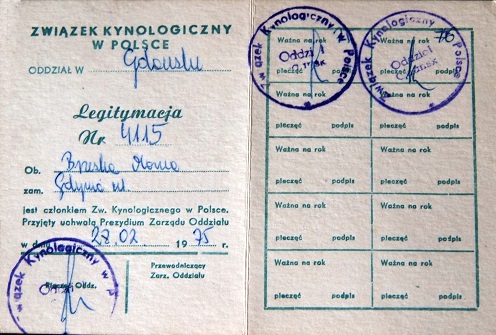 ZWIĄZEK KYNOLOGICZNY
W POLSCE
ODDZIAŁ W Gdańsku
Legitymacja
Nr 4115
Ob.
zam. Gdynia ul.
jest członkiem Zw. Kynologicznego w Polsce.
Przyjęty uchwałą Prezydium Zarządu Oddziału
w dniu 28.02 1975 r.
Związek Kynologiczny w P
Pieczęć Oddz.
Przewodniczący
Zarz. Oddziału
Ważna na rok
pieczęć podpis
Związek Kynologiczny w Polsce
Ważna na rok 76
pieczęć podpis
Związek Kynologiczny w Polsce
Oddział
Ważna na rok Ważna na rok
pieczęć podpis pieczęć podpis
Ważna na rok Ważna na rok
pieczęć podpis pieczęć podpis
Ważna na rok Ważna na rok
pieczęć podpis pieczęć podpis
Ważna na rok Ważna na rok
pieczęć podpis pieczęć podpis